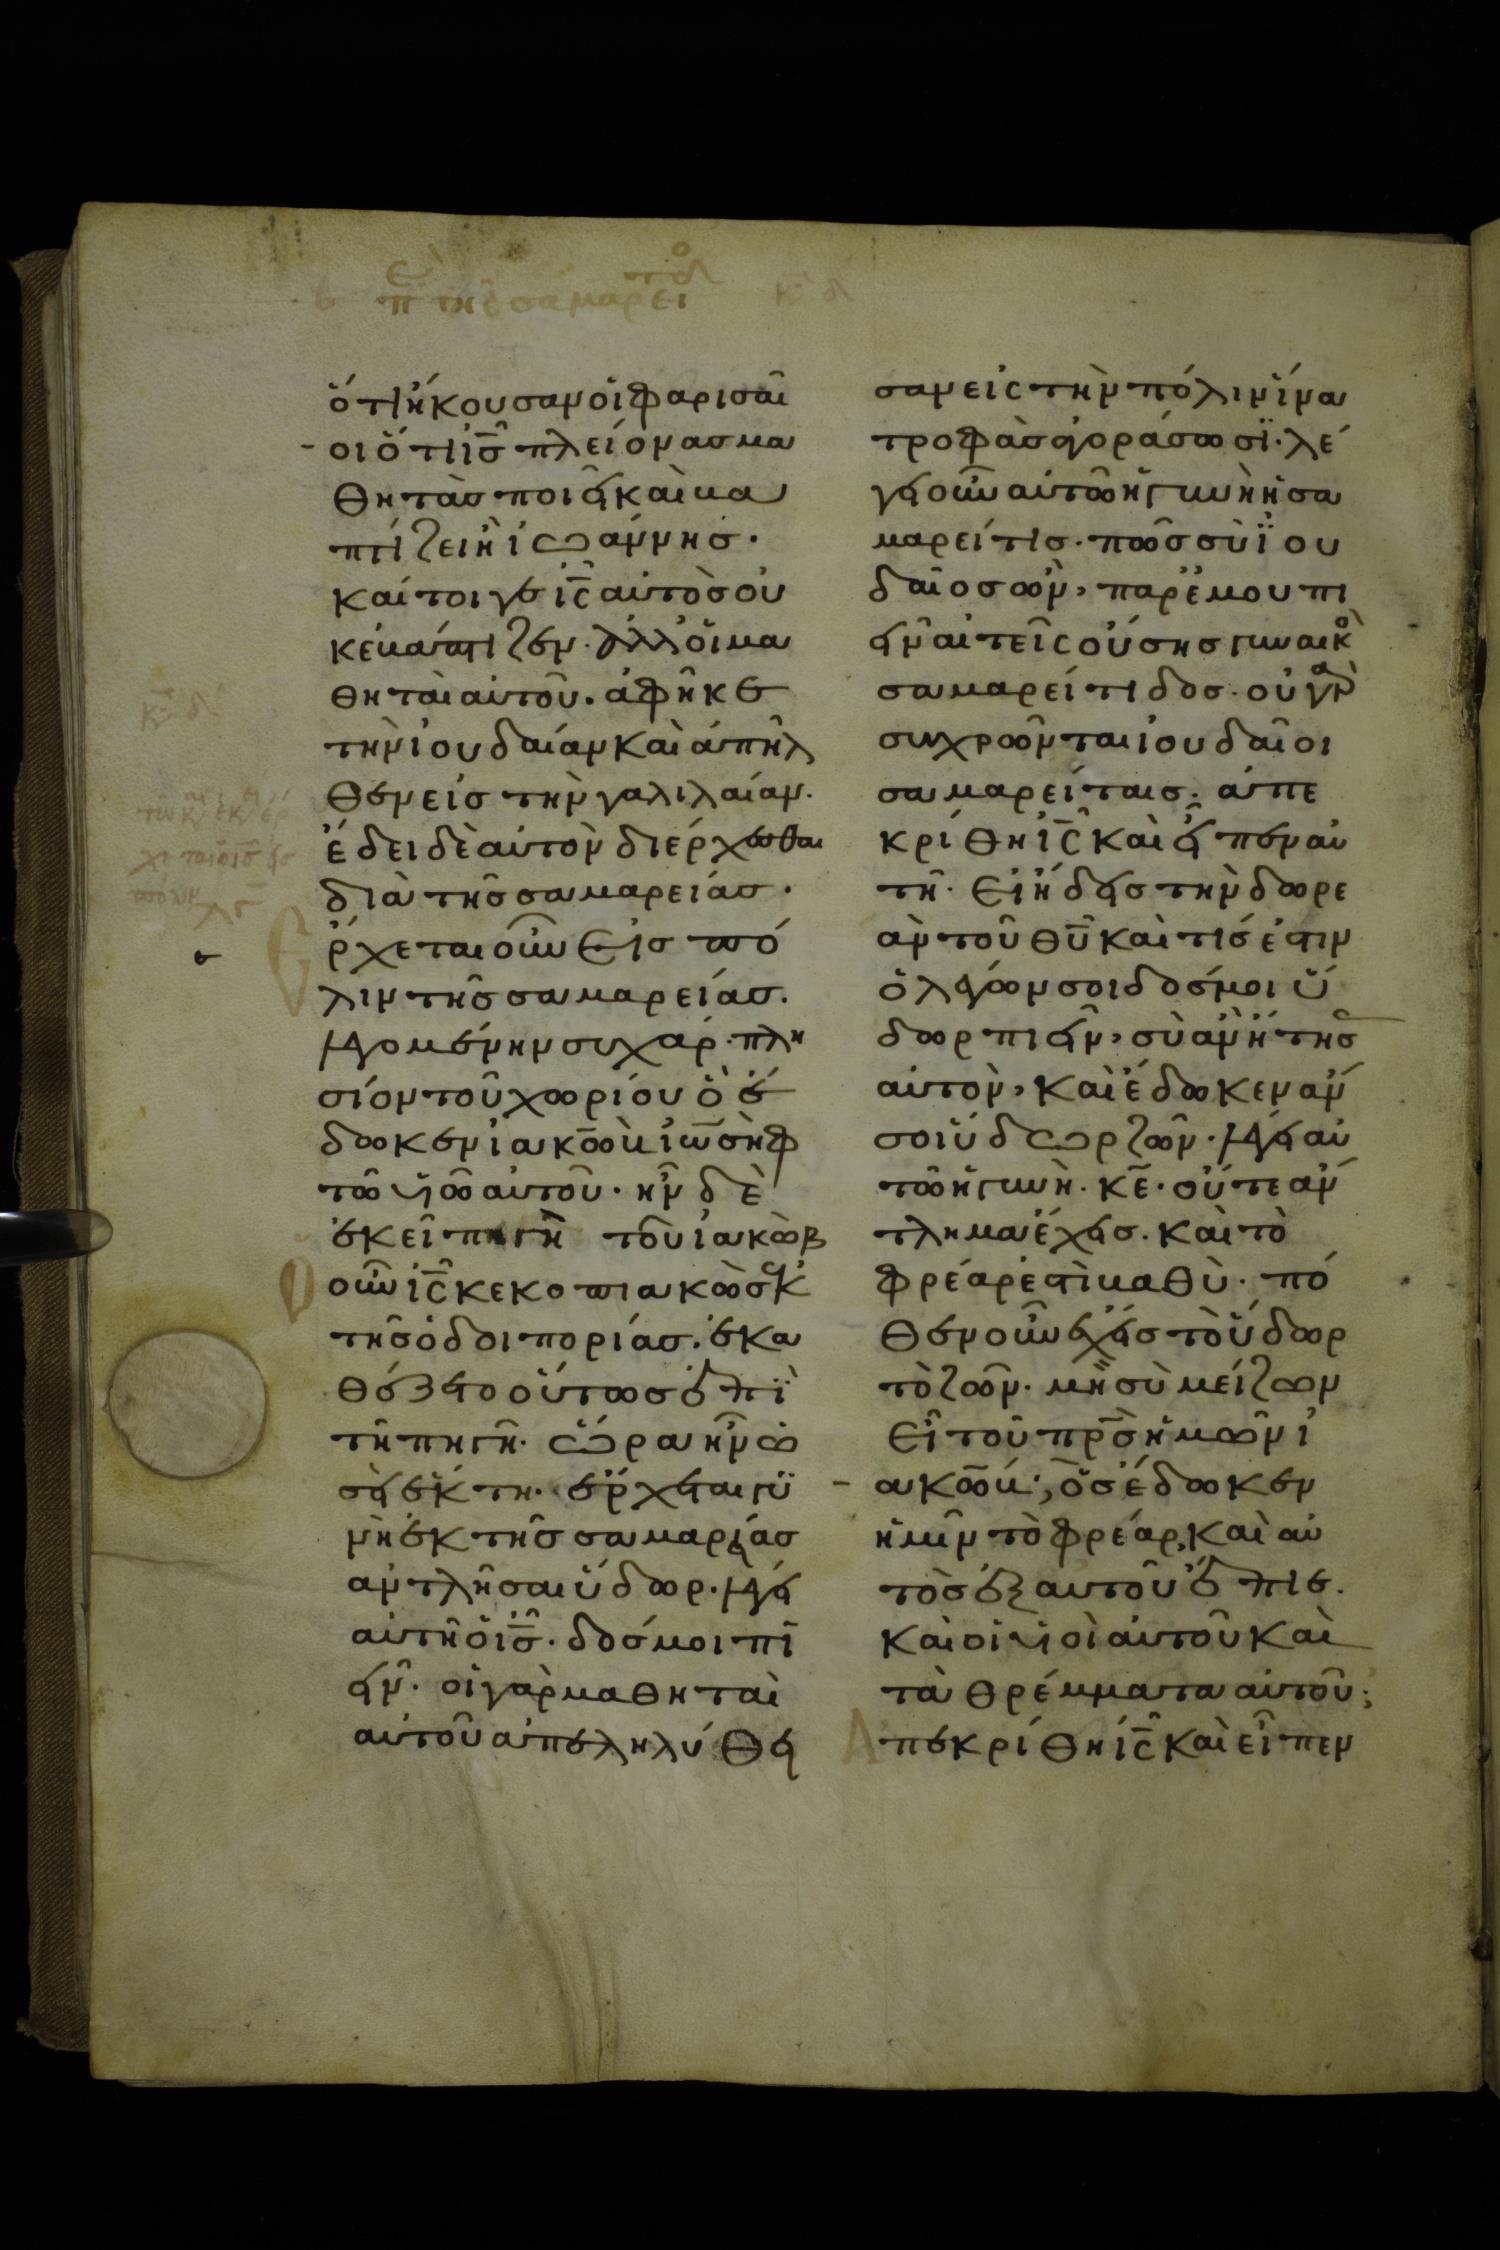 ὅτι ἤκουσαν οἱ φαρισαῖ
οι ὅτι ις πλείονας μα
θητὰς ποιεῖ καὶ βα
πτίζει ἢ ἰωάννης·
καίτοιγε ις αὐτὸς οὐ
κ ἐβάπτιζεν· ἀλλ' οἱ μα
θηταὶ αὐτοῦ· ἀφῆκε
τὴν ἰουδαίαν καὶ ἀπῆλ
θεν εἰς τὴν γαλιλαίαν·
ἔδει δὲ αὐτὸν διέρχεσθαι
διὰ τῆς σαμαρείας·
Ἔρχεται οὖν εἰς πό
λιν τῆς σαμαρείας·
λεγομένην συχάρ· πλη
σίον τοῦ χωρίου ὃ ἔ
δωκεν ἰακὼβ ἰωσὴφ
τῶ υἱῶ αὐτοῦ· ἦν δὲ
ἐκεῖ πηγὴ τοῦ ἰακώβ
Ὁ οὖν ις κεκοπιακὼς ἐκ
τῆς ὁδοιπορίας· ἐκα
θέζετο οὕτως ἐπὶ
τῆ πηγῆ· ὥρα ἦν ὡ
σεὶ ἕκτη· ἔρχεται γϋ
νὴ ἐκ τῆς σαμαρείας
ἀντλῆσαι ὕδωρ· λέγει
αὐτῆ ὁ ις· δός μοι πι
εῖν· οἱ γὰρ μαθηταὶ
αὐτοῦ ἀπεληλύθει
σαν εἰς τὴν πόλιν ἵνα
τροφὰς ἀγοράσωσϊ· λέ
γει οὖν αὐτῶ ἡ γυνὴ ἡ σα
μαρείτις· πῶς σὺ ϊου
δαῖος ὢν, παρ' ἐμοῦ πι
εῖν αἰτεῖς οὔσης γυναικὸ
σαμαρείτιδος· οὐ γὰρ
συγχρῶνται ἰουδαῖοι
σαμαρείταις· ἀπε
κρίθη ις καὶ εἶπεν αὐ
τῆ· Εἰ ἤδεις τὴν δωρε
ὰν τοῦ θυ καὶ τίς ἐστιν
ὁ λέγων σοι δός μοι ὕ
δωρ πιεῖν, σὺ ἂν ἤτησ
αὐτὸν, καὶ ἔδωκεν ἄν
σοι ὕδωρ ζῶν· λέγει αὐ
τῶ ἡ γυνὴ· κε· οὔτε ἄν
τλημα ἔχεις· καὶ τὸ
φρέαρ ἐστὶ βαθὺ· πό
θεν οὖν ἔχεις τὸ ὕδωρ
τὸ ζῶν· μὴ σὺ μείζων
εἶ τοῦ πρς ἡμῶν ἰ
ακώβ; ὃς ἔδωκεν
ἡμῖν τὸ φρέαρ, καὶ αὐ
τὸς ἐξ αυτοῦ ἔπιε·
καὶ οἱ υἱοὶ αὐτοῦ καὶ
τὰ θρέμματα αὐτοῦ;
Ἀπεκρίθη ις καὶ εἶπεν